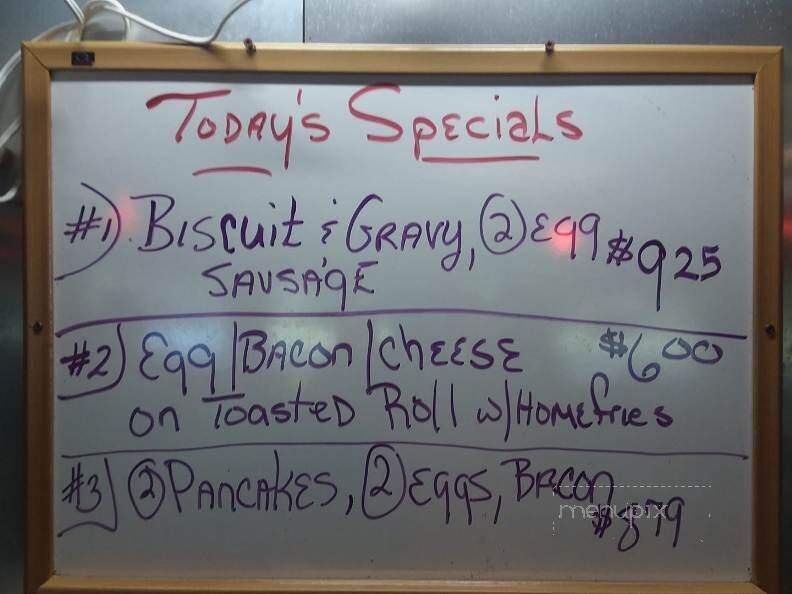 Today's Specials
#1) Biscuit & Gravy, (2) Egg $9 25
Sausage
#2) Egg/Bacon/Cheese $6 00
on Toasted Roll w/Homefries
#3) (2) Pancakes, (2) Eggs, Bacon
$8 79
menupix